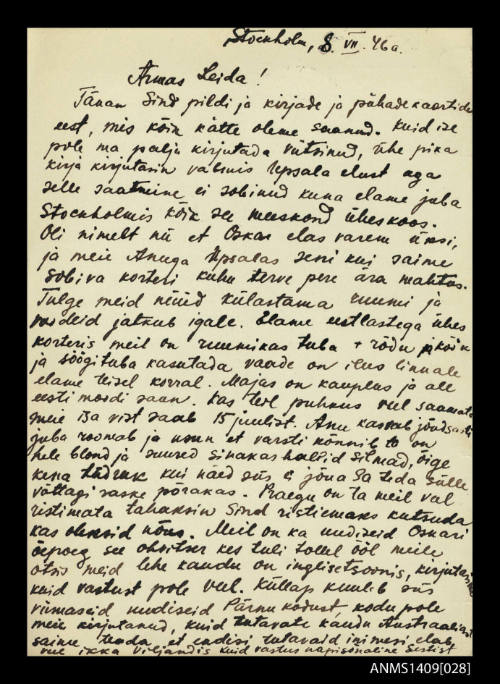 Stockholm, 8. VII. 46a.
Armas Leida!
Tänan Sind pildi ja kirjade ja pühadekaartide
eest, mis kõik kätte oleme saanud. Kuid ise
pole ma palju kirjutada viitsinud, ühe pika
kirja kirjutasin valmis Upsala elust aga
selle saatmine ei sobinud kuna elame juba
Stockholmis kõik see meeskond üheskoos.
Oli nimelt nii et Oskar elas varem üksi,
ja meie Anuga Upsalas seni kui saime
sobiva korteri kuhu terve pere ära mahtus.
Tulge meid nüüd külastama ruumi ja
voodeid jatkub igale. Elame eestlastega ühes
korteris meil on ruumikas tuba + rõdu köök
ja söögituba kasutada vaade on ilus linnale
elame teisel korral. Majas on kauplus ja all
eesti moodi saan. Kas teil puhkus veel saamata
meie isa vist saab 15 juulist. Anu kasvab jõudsasti
juba roomab ja usun et varsti kõnnib ta on
hele blond ja suured sinakashallid silmad, õige
kena tüdruk kui näed siis ei jõua Sa teda sülle
võttagi raske põrakas. Praegu on ta meil val
ristimata tahaksin Sind ristiemaks kutsuda
kas oleksid nõus. Meil on ka uudiseid Oskari
õepoeg see ohvitser kes tuli tollel ööl meile
otsis meid lehe kaudu on inglisetsoonis, kirjutasime
kuid vastust pole veel. Küllap kuuleb siis
viimaseid uudiseid Pärnu kodust, kodu pole
meie kirjutanud, kuid tutavate kaudu Austraaliast
saime teada, et endisi tutavaid inimesi elab
veel ikka Viljandis kuid vastus napisõnaline Eestist
ANMS1409[028]